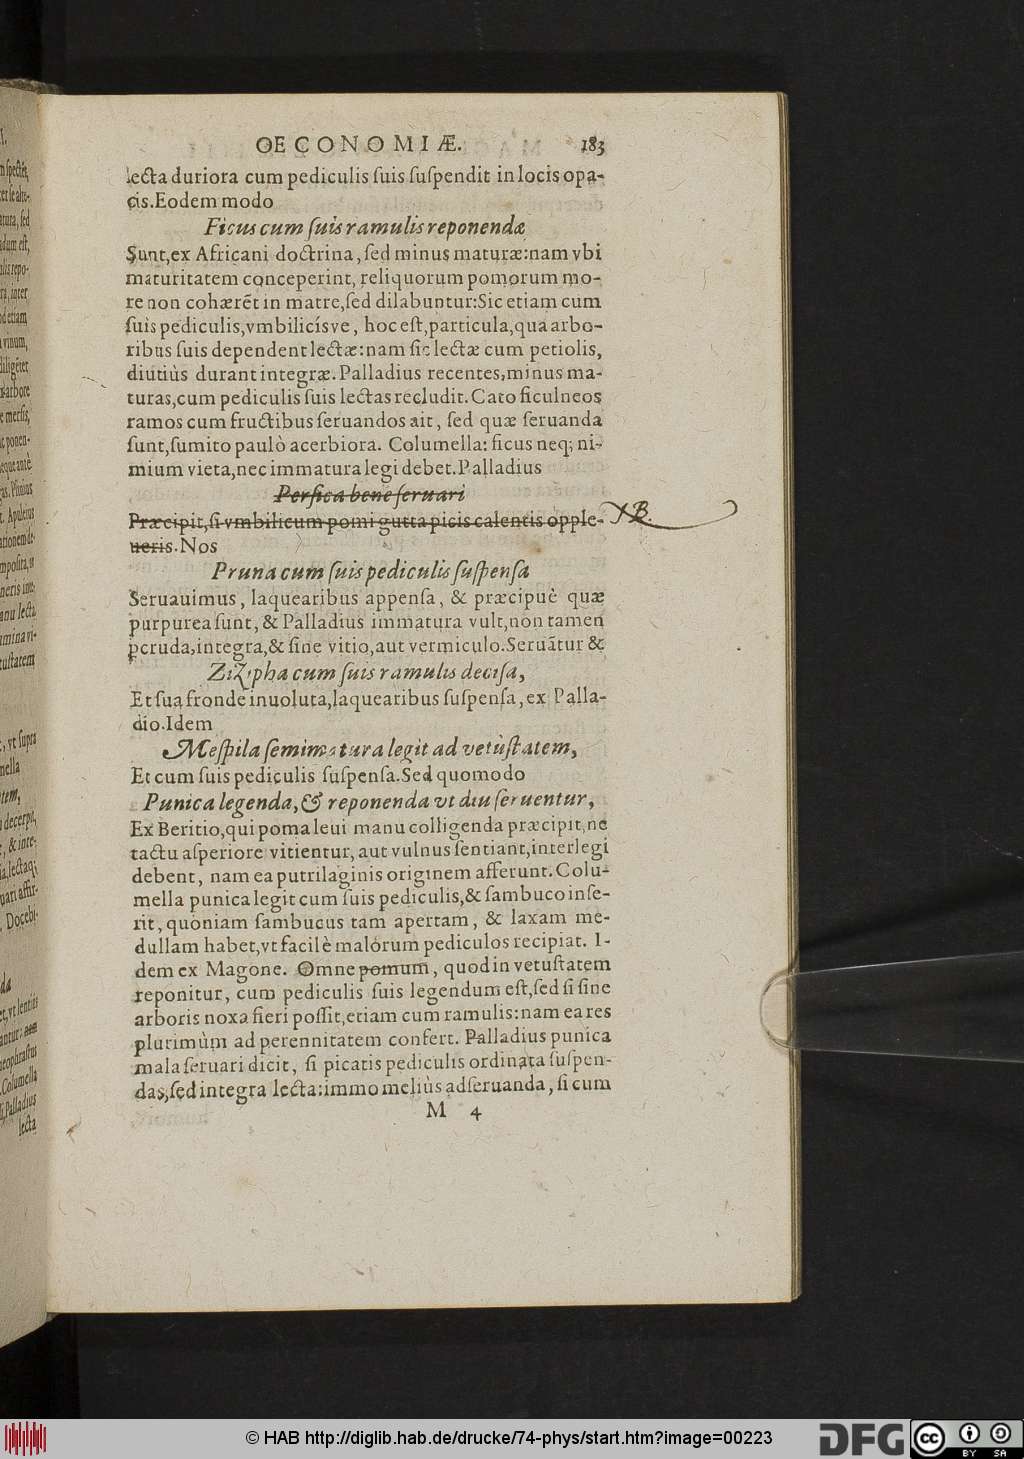 OECONOMIÆ. 183
lecta duriora cum pediculis ſuis ſuſpendit in locis opa-
cis. Eodem modo
Ficus cum ſuis ramulis reponendæ
Sunt, ex Africani doctrina, ſed minus maturæ: nam vbi
maturitatem conceperint, reliquorum pomorum mo-
re non cohærēt in matre, ſed dilabuntur: Sic etiam cum
ſuis pediculis, vmbilicísve, hoc eſt, particula, qua arbo-
ribus ſuis dependent lectæ: nam ſic lectæ cum petiolis,
diutiùs durant integræ. Palladius recentes, minus ma-
turas, cum pediculis ſuis lectas recludit. Cato ficulneos
ramos cum fructibus ſeruandos ait, ſed quæ ſeruanda
ſunt, ſumito paulò acerbiora. Columella: ficus neq; ni-
mium vieta, nec immatura legi debet. Palladius
Perſica bene ſeruari
Præcipit, ſi vmbilicum pomi gutta picis calentis opple- B.
ueris. Nos
Pruna cum ſuis pediculis ſuſpenſa
Seruauimus, laquearibus appenſa, & præcipuè quæ
purpurea ſunt, & Palladius immatura vult, non tamen
pcruda, integra, & ſine vitio, aut vermiculo. Seruātur &
Zizipha cum ſuis ramulis deciſa,
Et ſua fronde inuoluta, laquearibus ſuſpenſa, ex Palla-
dio. Idem
Meſpila ſemimatura legit ad vetùſtatem,
Et cum ſuis pediculis ſuſpenſa. Sed quomodo
Punica legenda, & reponenda vt diu ſeruentur,
Ex Beritio, qui poma leui manu colligenda præcipit, ne
tactu aſperiore vitientur, aut vulnus ſentiant, interlegi
debent, nam ea putrilaginis originem afferunt. Colu-
mella punica legit cum ſuis pediculis, & ſambuco inſe-
rit, quoniam ſambucus tam apertam, & laxam me-
dullam habet, vt facilè malorum pediculos recipiat. I-
dem ex Magone. Omne pomum, quod in vetuſtatem
reponitur, cum pediculis ſuis legendum eſt, ſed ſi ſine
arboris noxa fieri poſſit, etiam cum ramulis: nam ea res
plurimùm ad perennitatem confert. Palladius punica
mala ſeruari dicit, ſi picatis pediculis ordinata ſuſpen-
das, ſed integra lecta: immo meliùs adſeruanda, ſi cum
M 4
© HAB http://diglib.hab.de/drucke/74-phys/start.htm?image=00223
DFG cc BY SA